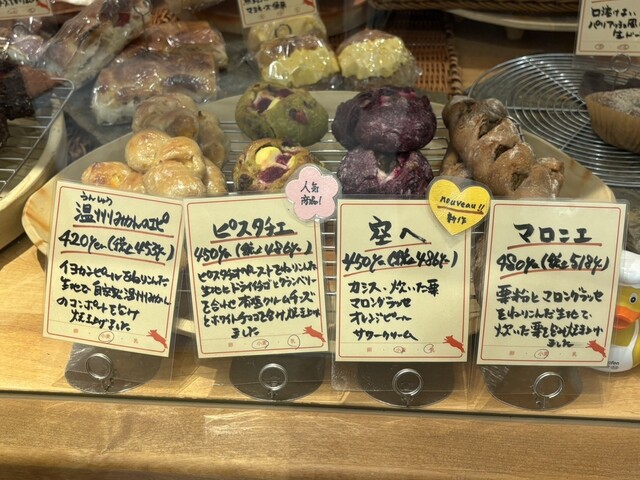 うんしゅう
温州みかんのエピ
420yen(税込453円)
イヨカンピールをねりこんだ
生地で自家製温州みかん
のコンポートを包み
焼き上げました
卵 小麦 乳
人気
商品!
ピスタチエ
450yen(税込486円)
ピスタチオペーストをねりこんだ
生地とドライイチゴとクランベリー
を合わせ
クリームチーズ
とホワイトチョコを包み焼き上げ
ました
卵 小麦 乳
nouveau!!
新作
空へ
450yen(税込486円)
カシス、炊いた栗
マロングラッセ
オレンジピール
サワークリーム
卵 小麦 乳
マロニエ
480yen(税込518円)
栗粉とマロングラッセ
をねりこんだ生地で、
炊いた栗を包み焼き上げ
ました
卵 小麦 乳
口溶けよい